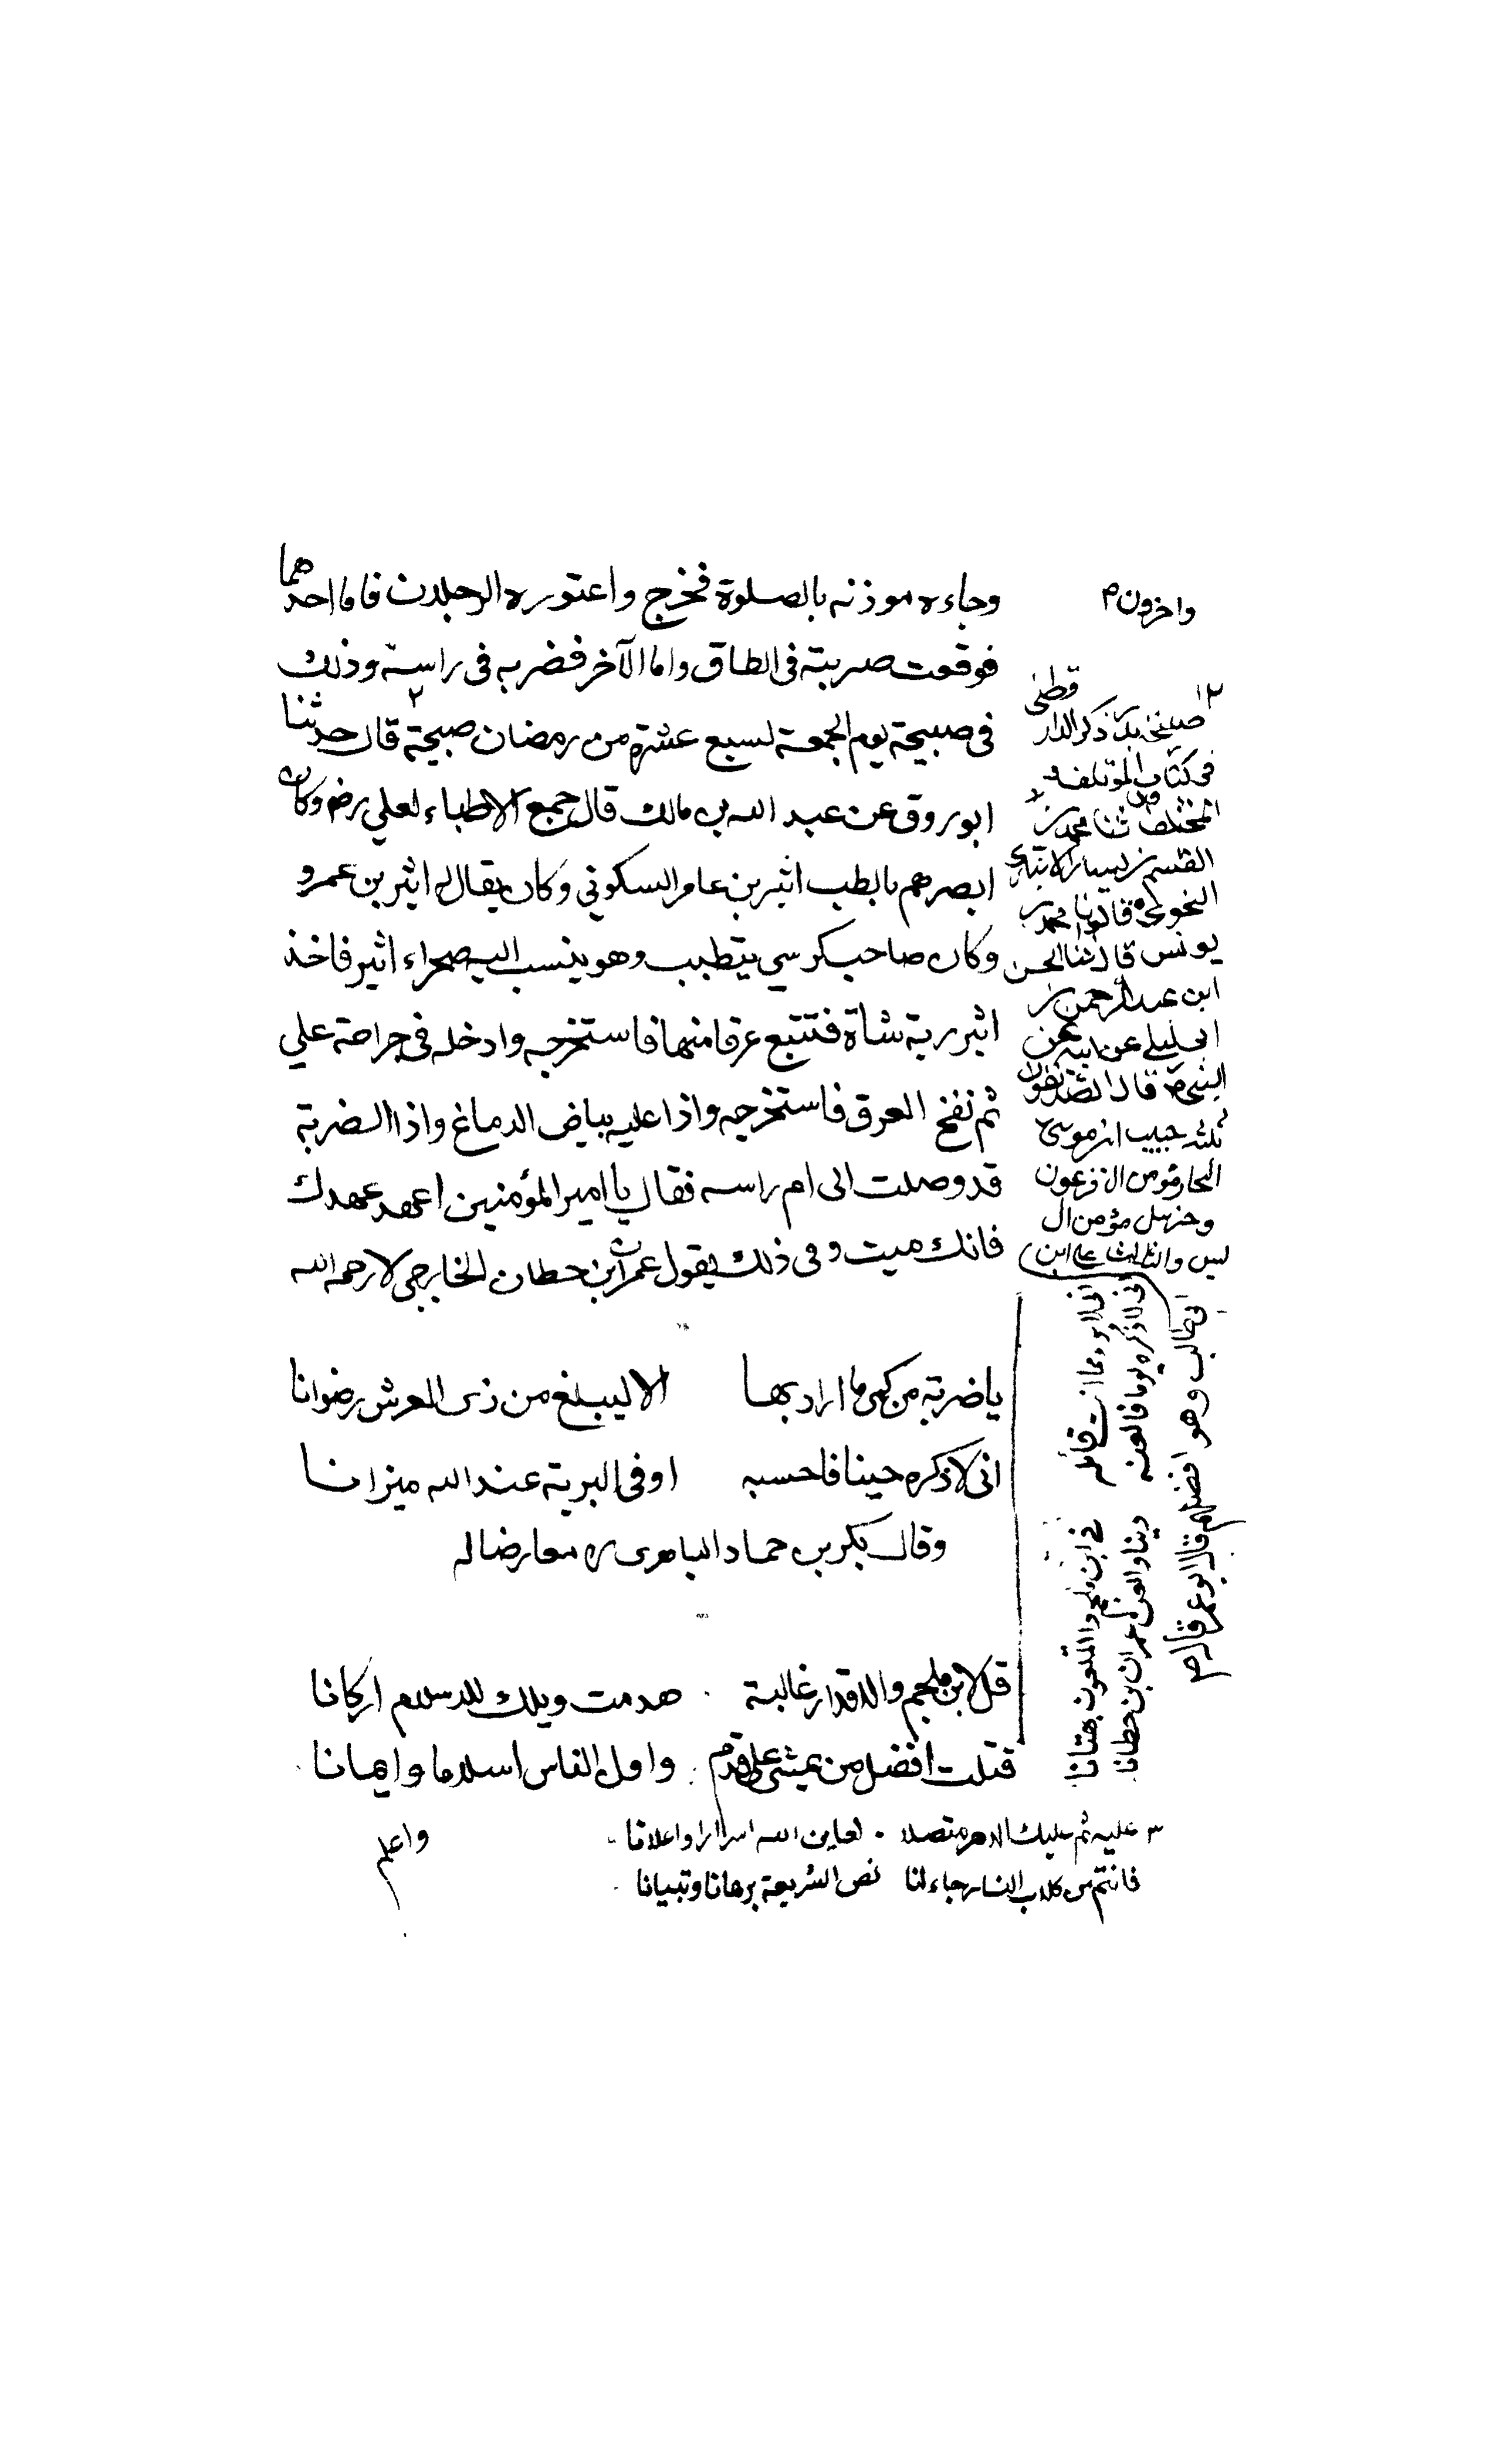 وجاءه موذنه بالصلوة فخرج واعتوره الرجلان فاما احدهما
فوقعت ضربته في الطاق واما الآخر فضربه في راسه وذلك
في صبيحة يوم الجمعة لسبع عشرة من رمضان صبيحة قال حدثنا
ابو روق عن عبد الله بن مالك قال جمع الاطباء لعلي رضه وكان
ابصرهم بالطب اثير بن عامر السكوني وكان يقال له اثير بن عمرو
وكان صاحب كرسي يتطبب وهو ينسب اليه صحراء اثير فاخذ
اثير رية شاة فتتبع عرقا منها فاستخرجه وادخله في جراحة علي
ثم نفخ العرق فاستخرجه واذا عليه بياض الدماغ واذا الضربة
قد وصلت الى ام راسه فقال يا امير المؤمنين اعهد عهدك
فانك ميت وفي ذلك يقول عمران ابن حطان الخارجي لا رحمه الله
يا ضربة من كمي ما اراد بها الا ليبلغ من ذي العرش رضوانا
اني لاذكره حينا فاحسبه اوفى البرية عند الله ميزانا
وقال بكر بن حماد معارضا له
قل لابن ملجم والاقدار غالبة هدمت ويلك للاسلام اركانا
قتلت افضل من يمشي على قدم واول الناس اسلاما وايمانا
٣ عليه ثم عليك الدهر متصلا لعاين الله اسرارا واعلانا
فانتم من كلاب النار جاء لنا نص الشريعة برهانا وتبيانا
واعلم
واخرون م
قطني
ذكر الدار
في كتاب المؤتلف و
المختلف ثنا محمد بن
القسم بن بشار الانباري
النحوي قال ثنا محمد بن
يونس قال ثنا الحسن
ابن عبد الرحمن بن
ابي ليلى عن ابيه عن
النبي ص قال الصديقون
ثلثة حبيب
النجار مؤمن آل فرعون
وحزبيل مؤمن آل
يس والثالث علي ابن
ابي طالب وهو افضلهم قال ابو عمر قال م
اني لاذكره يوما فالعنه دينا والعن عمران بن حطانا
اني لابرء مما انت قائله في ابن ملجم الملعون بهتانا